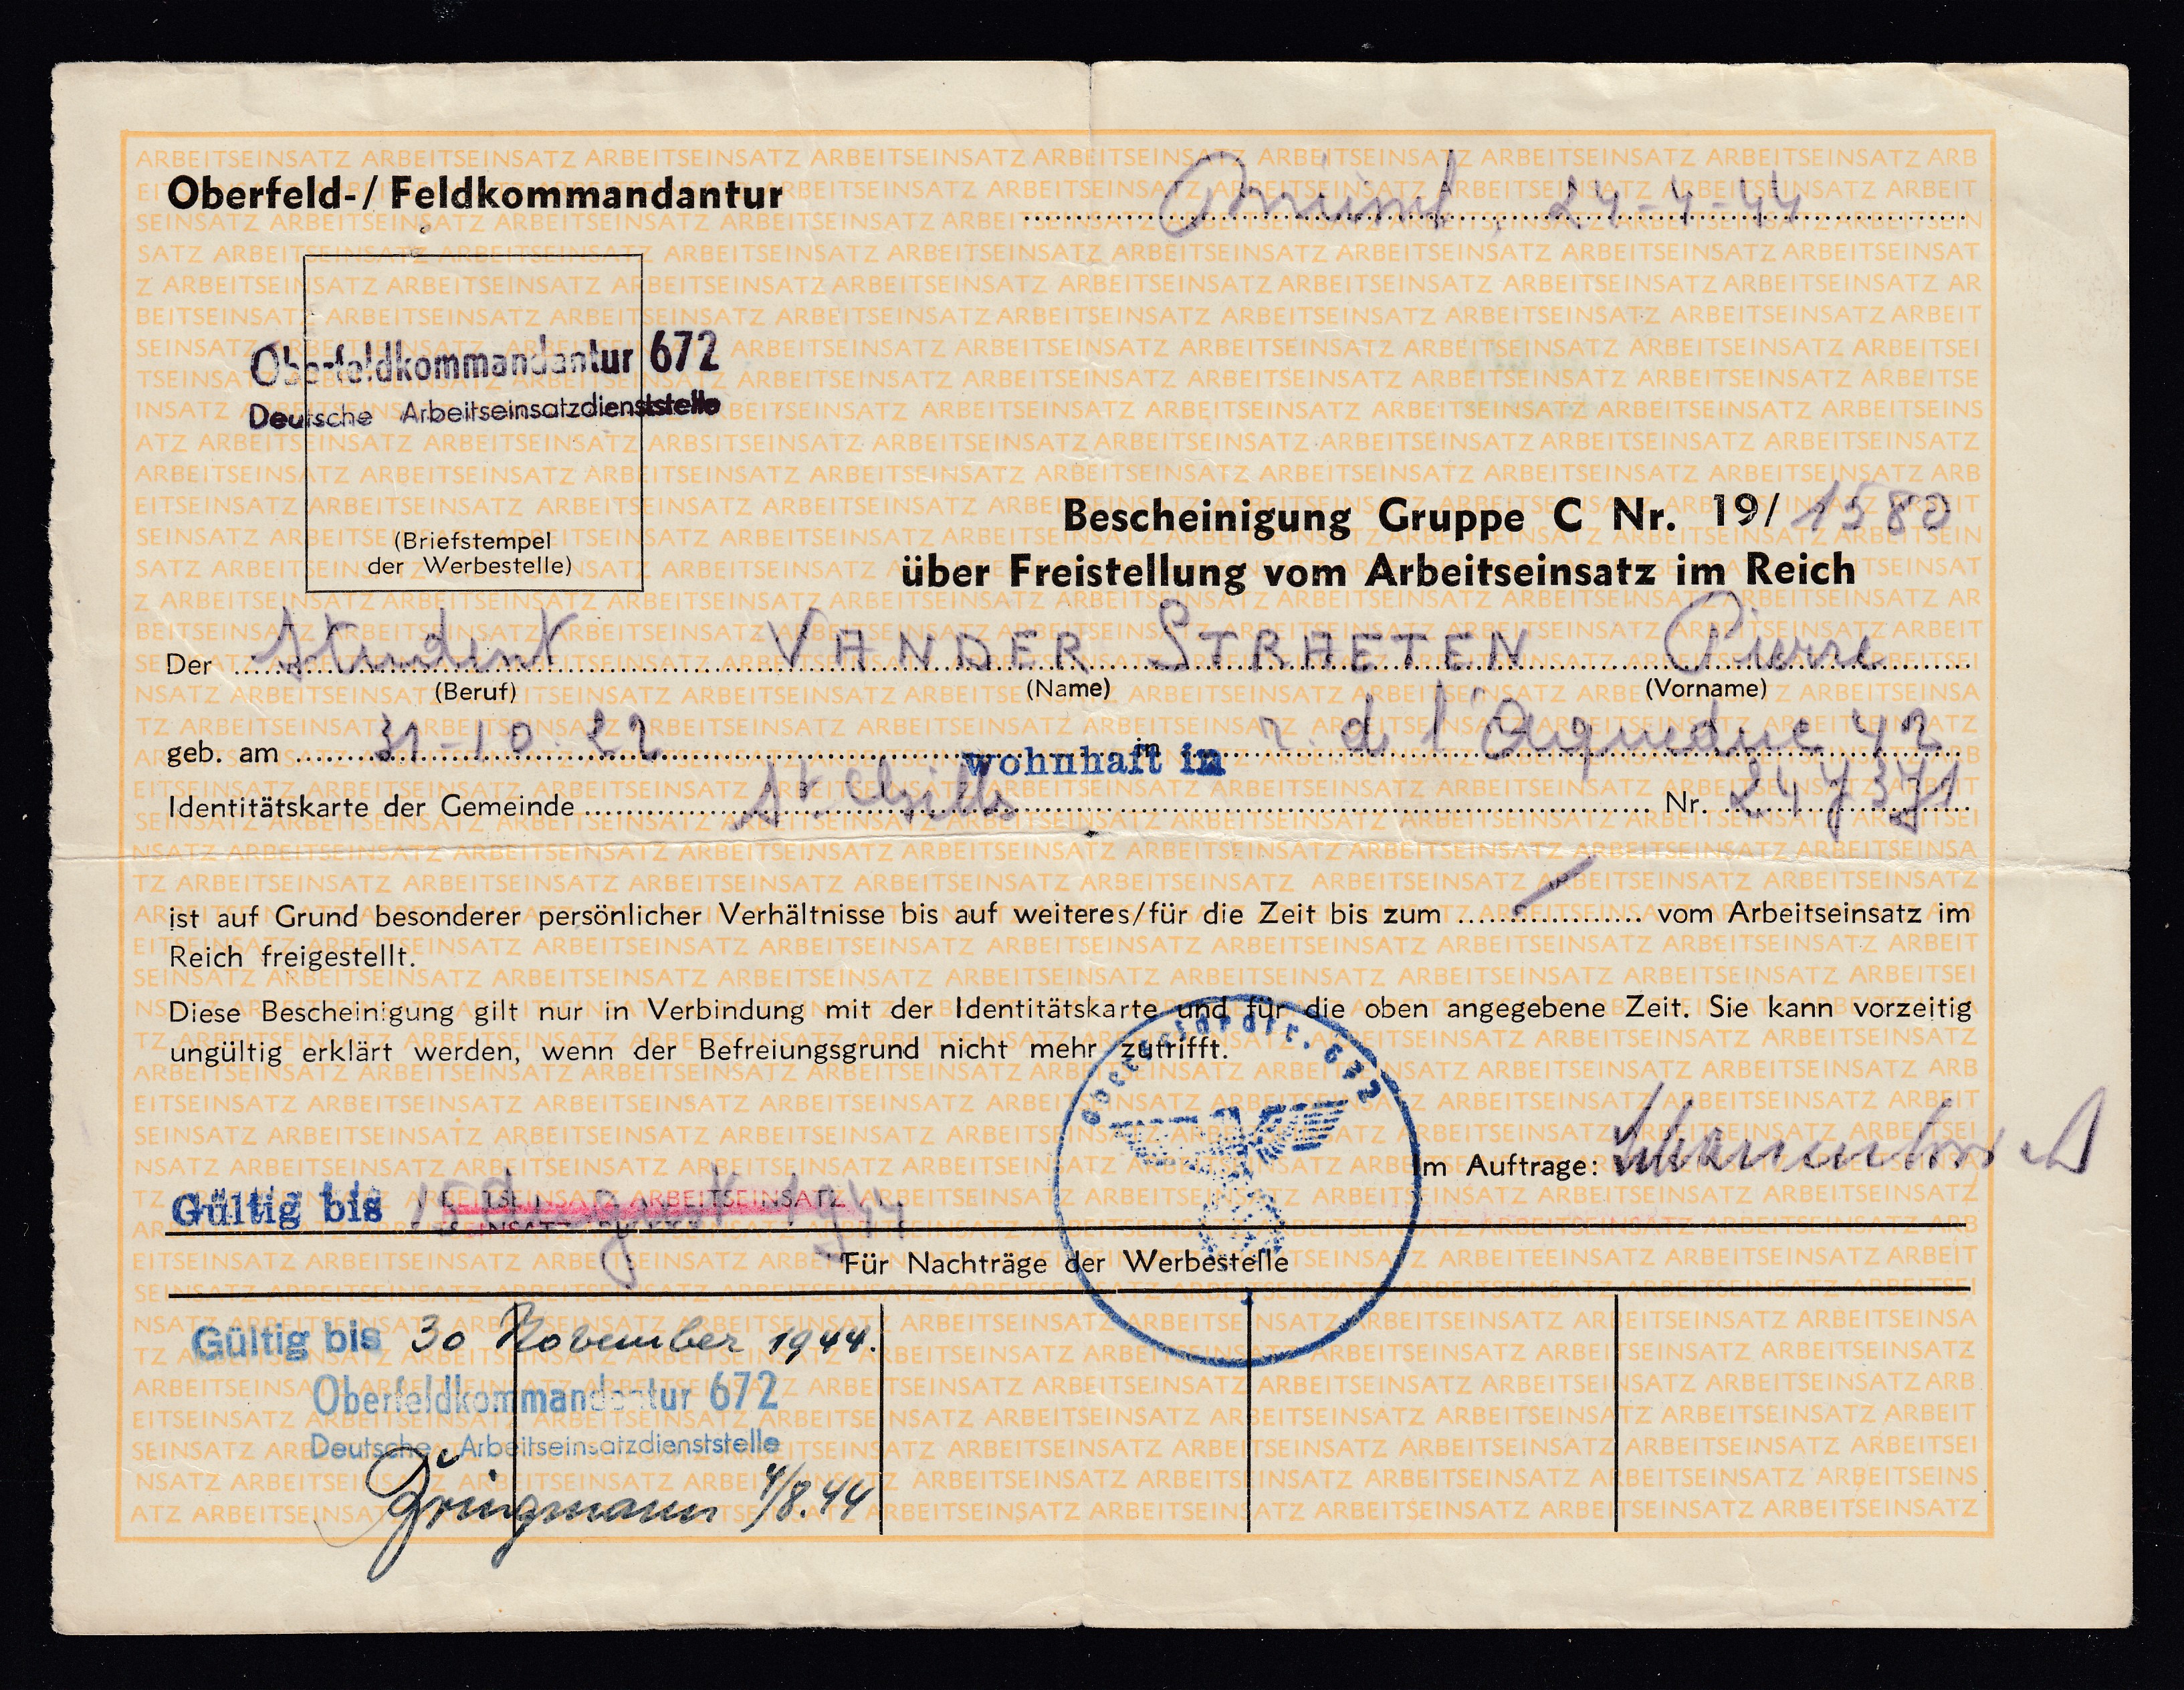 Oberfeld-/ Feldkommandantur
Brüssel, 24-4-44
Oberfeldkommandantur 672
Deutsche Arbeitseinsatzdienststelle
(Briefstempel
der Werbestelle)
Bescheinigung Gruppe C Nr. 19/ 1580
über Freistellung vom Arbeitseinsatz im Reich
Der Student VANDER STRAETEN Pierre
(Beruf) (Name) (Vorname)
geb. am 31-10-22 wohnhaft in r. d. l'Aqueduc 42
Identitätskarte der Gemeinde St Gilles Nr. 247371
ist auf Grund besonderer persönlicher Verhältnisse bis auf weiteres/für die Zeit bis zum vom Arbeitseinsatz im
Reich freigestellt.
Diese Bescheinigung gilt nur in Verbindung mit der Identitätskarte und für die oben angegebene Zeit. Sie kann vorzeitig
ungültig erklärt werden, wenn der Befreiungsgrund nicht mehr zutrifft.
Oberfeldkdtr. 672
Im Auftrage:
Gültig bis 15 August 1944
Für Nachträge der Werbestelle
Gültig bis 30 November 1944.
Oberfeldkommandantur 672
Deutsche Arbeitseinsatzdienststelle
4/8.44